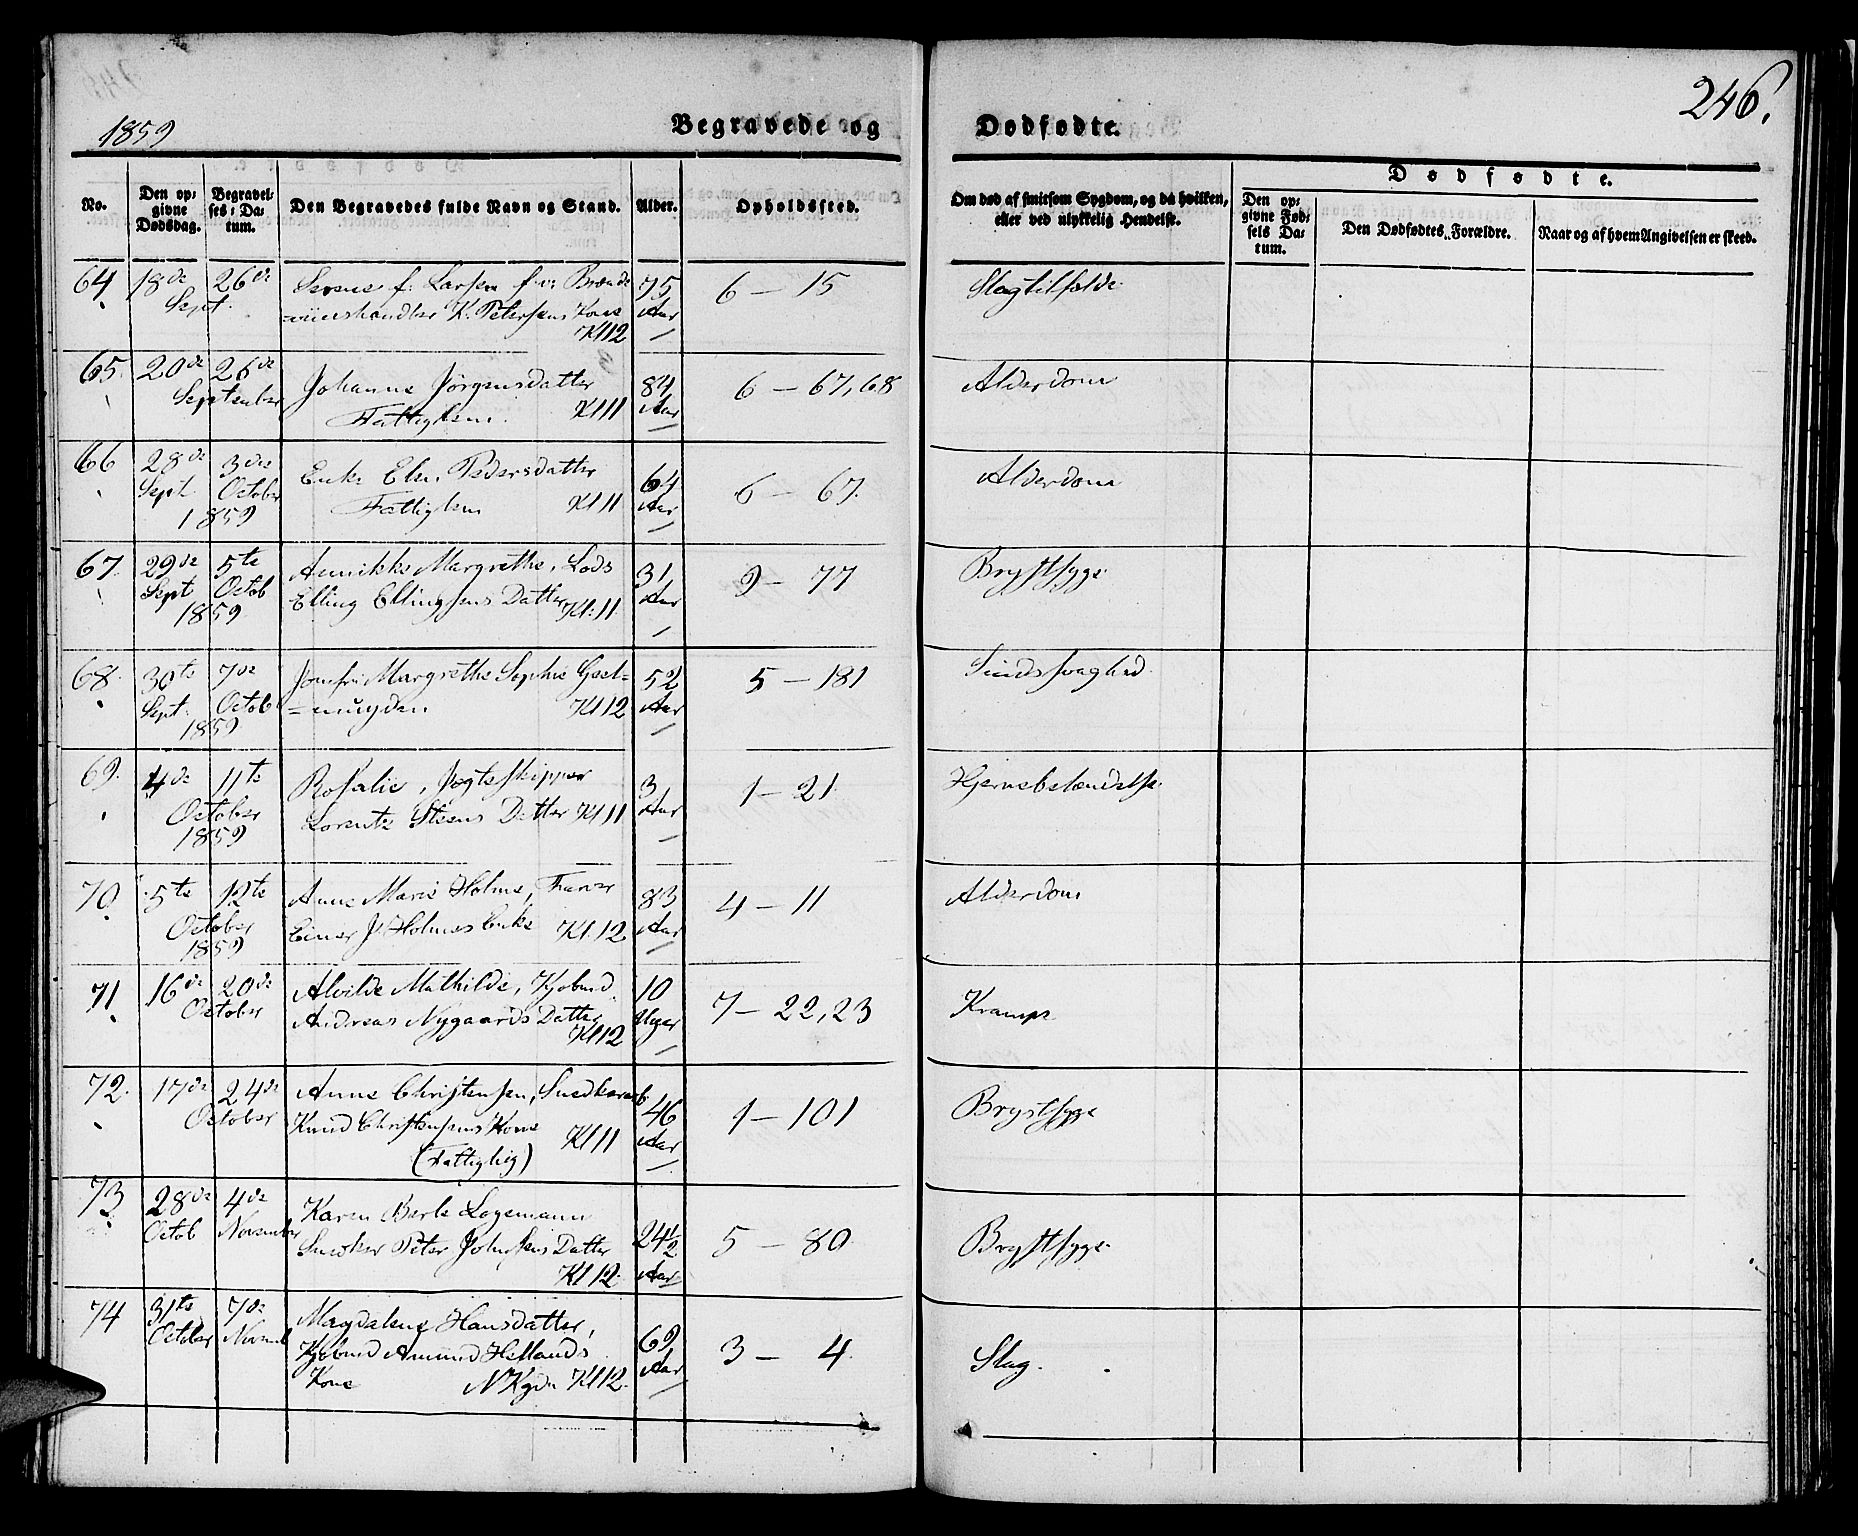 1859
Begravede og Dødfødte.
246.
No.
Den op=
givne
Dødsdag.
Begravel=
ses=Da=
tum.
Den Begravedes fulde Navn og Stand.
Alder.
Opholdssted.
Om død af smitsom Sygdom, og da hvilken,
eller ved ulykkelig Hendelse.
Dødfødte.
Den op=
givne Fød=
sels Da=
tum.
Den Dødfødtes Forældre.
Naar og af hvem Angivelsen er skeed.
64 18de 26de
Sept.
Larsen Brænde
=viinshandler K. Petersens Kone
Kl 12
75
Aar
6 — 15
Slagtilfælde
65. 20de 26de
September
Johanne Jørgensdatter
Fattiglem. Kl 11
84
Aar
6 — 67,68
Alderdom
66 28de 3die
Sept. October
1859
Enke Else Pedersdatter
Fattiglem Kl 11
64
Aar
6 — 67.
Alderdom
67. 29de 5te
Sept Octob
1859
Annikke Margrethe, Lods
Elling Ellingsens Datter Kl: 11.
31
Aar
9 — 77
Brystsyge
68. 30te 7de
Sept. Octob
1859
Jomfru Margrethe Sophie Geel=
=muyden Kl 12
52
Aar
5 — 181
Sindssvaghed
69. 4de 11te
October
1859
Rosalie, Jagteskipper
Lorentz Steens Datter Kl 11
3
Aar
1 — 21
Hjernebetændelse
70. 5te 12te
October
1859
Anne Marie Holme, Farver
Einer J. Holmes Enke Kl. 12
83
Aar
4 — 11
Alderdom
71 16de 20de
October
Alvilde Mathilde, Kjøbmd.
Andreas Nygaards Datter
Kl 12
10
Uger
7 — 22,23
Krampe
72. 17de 24de
October
Anne Christensen, Snedker
Knud Christensens Kone
Kl 11
(Fattiglig)
46
Aar
1 — 101
Brystsyge
73 28de 4de
Octob November
Karen Berte Logemann
Snedker Peter Johnsens Datter
Kl 12.
24½
Aar
5 — 80
Brystsyge
74 31te 7de
October Novemb
Magdalene Hansdatter,
Kjøbmd Amund Hellands
Kone Kl 12.
69
Aar
3 — 4.
Slag.